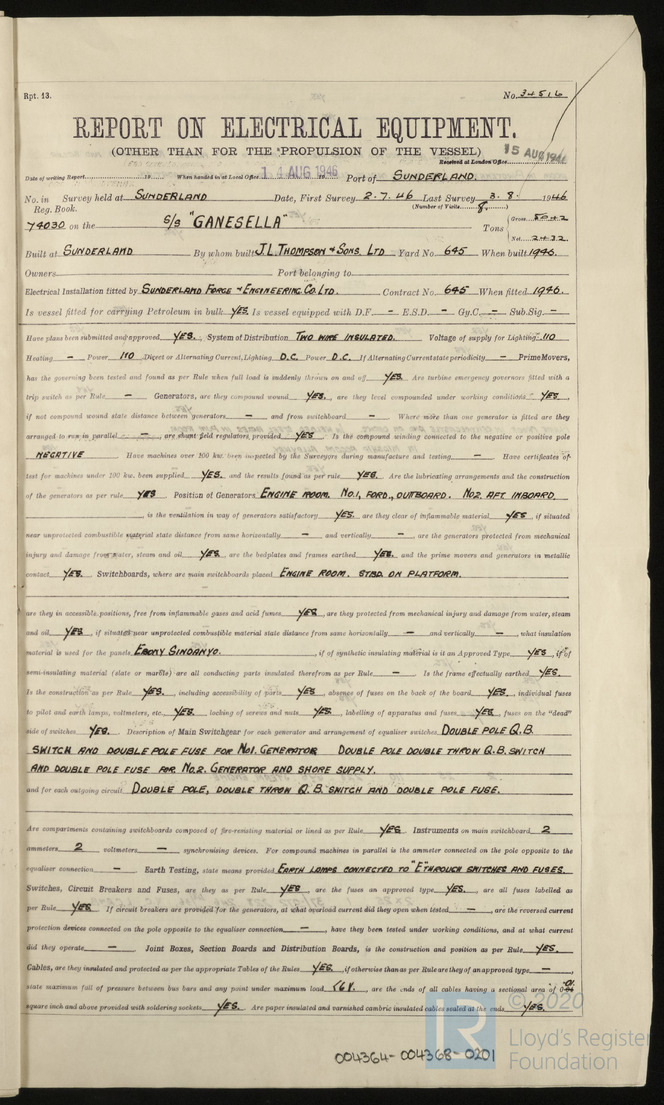 Rpt. 13.
No. 34516
REPORT ON ELECTRICAL EQUIPMENT.
(OTHER THAN FOR THE PROPULSION OF THE VESSEL)
Received at London Office 15 AUG 1946
Date of writing Report 19 When handed in at Local Office 14 AUG 1946 Port of SUNDERLAND.
No. in Survey held at SUNDERLAND Date, First Survey 2.7.46 Last Survey 3.8. 1946
Reg. Book. (Number of Visits 8.)
74030 on the S/S "GANESELLA" Tons Gross 5042 Net 2432
Built at SUNDERLAND By whom built J.L. THOMPSON & SONS. LTD Yard No. 645 When built 1946.
Owners Port belonging to
Electrical Installation fitted by SUNDERLAND FORGE & ENGINEERING. CO. LTD. Contract No. 645 When fitted 1946.
Is vessel fitted for carrying Petroleum in bulk YES. Is vessel equipped with D.F. – E.S.D. – Gy.C. – Sub.Sig. –
Have plans been submitted and approved YES. System of Distribution TWO WIRE INSULATED. Voltage of supply for Lighting 110
Heating – Power 110 Direct or Alternating Current, Lighting D.C. Power D.C. If Alternating Current state periodicity – Prime Movers,
has the governing been tested and found as per Rule when full load is suddenly thrown on and off YES. Are turbine emergency governors fitted with a
trip switch as per Rule – Generators, are they compound wound YES. are they level compounded under working conditions YES.
if not compound wound state distance between generators – and from switchboard – Where more than one generator is fitted are they
arranged to run in parallel – are shunt field regulators provided YES Is the compound winding connected to the negative or positive pole
NEGATIVE Have machines over 100 kw. been inspected by the Surveyors during manufacture and testing – Have certificates of
test for machines under 100 kw. been supplied YES. and the results found as per rule YES. Are the lubricating arrangements and the construction
of the generators as per rule YES Position of Generators ENGINE ROOM. NO.1, FORD., OUTBOARD. NO2. AFT INBOARD.
is the ventilation in way of generators satisfactory YES. are they clear of inflammable material YES if situated
near unprotected combustible material state distance from same horizontally – and vertically – are the generators protected from mechanical
injury and damage from water, steam and oil YES. are the bedplates and frames earthed YES. and the prime movers and generators in metallic
contact YES. Switchboards, where are main switchboards placed ENGINE ROOM. STBD. ON PLATFORM.
are they in accessible positions, free from inflammable gases and acid fumes YES. are they protected from mechanical injury and damage from water, steam
and oil YES. if situated near unprotected combustible material state distance from same horizontally – and vertically – what insulation
material is used for the panels EBONY SINDANYO. if of synthetic insulating material is it an Approved Type YES. if of
semi-insulating material (slate or marble) are all conducting parts insulated therefrom as per Rule – Is the frame effectually earthed YES.
Is the construction as per Rule YES. including accessibility of parts YES. absence of fuses on the back of the board YES. individual fuses
to pilot and earth lamps, voltmeters, etc. YES. locking of screws and nuts YES. labelling of apparatus and fuses YES. fuses on the "dead"
side of switches YES. Description of Main Switchgear for each generator and arrangement of equaliser switches DOUBLE POLE Q.B.
SWITCH AND DOUBLE POLE FUSE FOR NO1. GENERATOR DOUBLE POLE DOUBLE THROW Q.B. SWITCH
AND DOUBLE POLE FUSE FOR NO.2. GENERATOR AND SHORE SUPPLY.
and for each outgoing circuit DOUBLE POLE, DOUBLE THROW Q.B. SWITCH AND DOUBLE POLE FUSE.
Are compartments containing switchboards composed of fire-resisting material or lined as per Rule YES. Instruments on main switchboard 2
ammeters 2 voltmeters – synchronising devices. For compound machines in parallel is the ammeter connected on the pole opposite to the
equaliser connection – Earth Testing, state means provided EARTH LAMPS CONNECTED TO "E" THROUGH SWITCHES AND FUSES.
Switches, Circuit Breakers and Fuses, are they as per Rule YES are the fuses an approved type YES. are all fuses labelled as
per Rule YES. If circuit breakers are provided for the generators, at what overload current did they open when tested – are the reversed current
protection devices connected on the pole opposite to the equaliser connection – have they been tested under working conditions, and at what current
did they operate – Joint Boxes, Section Boards and Distribution Boards, is the construction and position as per Rule YES.
Cables, are they insulated and protected as per the appropriate Tables of the Rules YES. if otherwise than as per Rule are they of an approved type –
state maximum fall of pressure between bus bars and any point under maximum load <6V. are the ends of all cables having a sectional area of .01
square inch and above provided with soldering sockets YES. Are paper insulated and varnished cambric insulated cables sealed at the ends YES.
© 2020
LR
Lloyd's Register
Foundation
004364-004368-0201